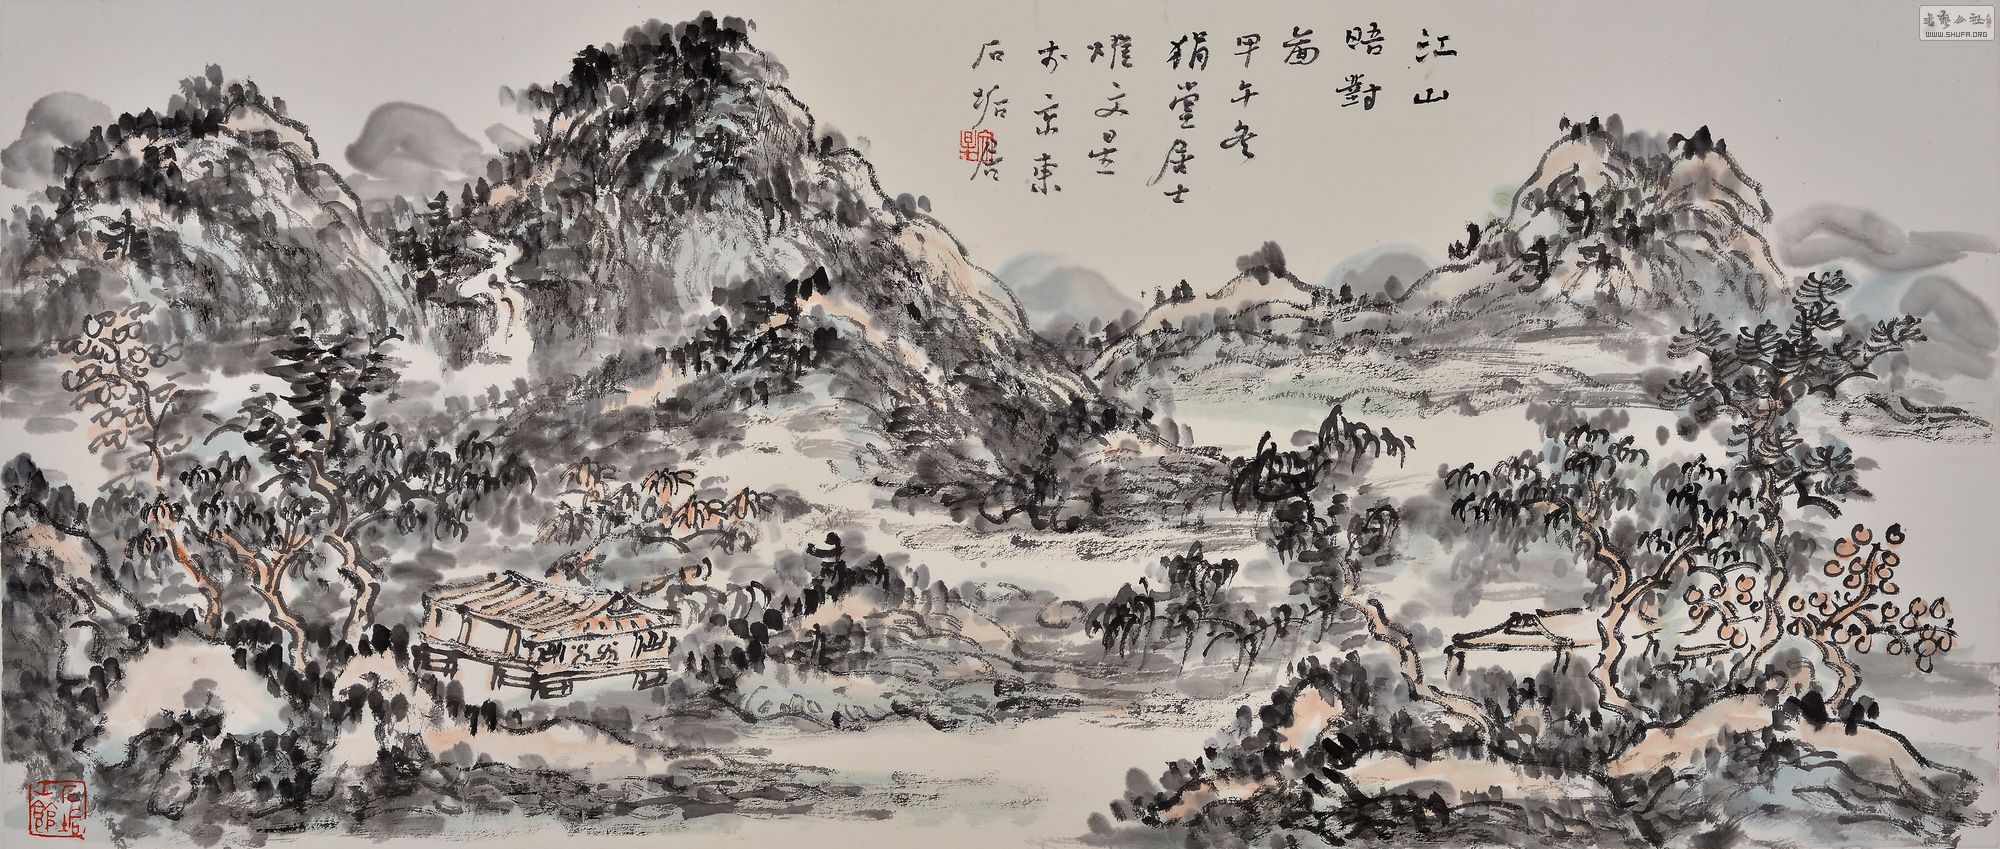 江山
晤對
啚
甲午冬
狷堂居士
燿文是
於京東
石垢居
書藝公社
WWW.SHUFA.ORG